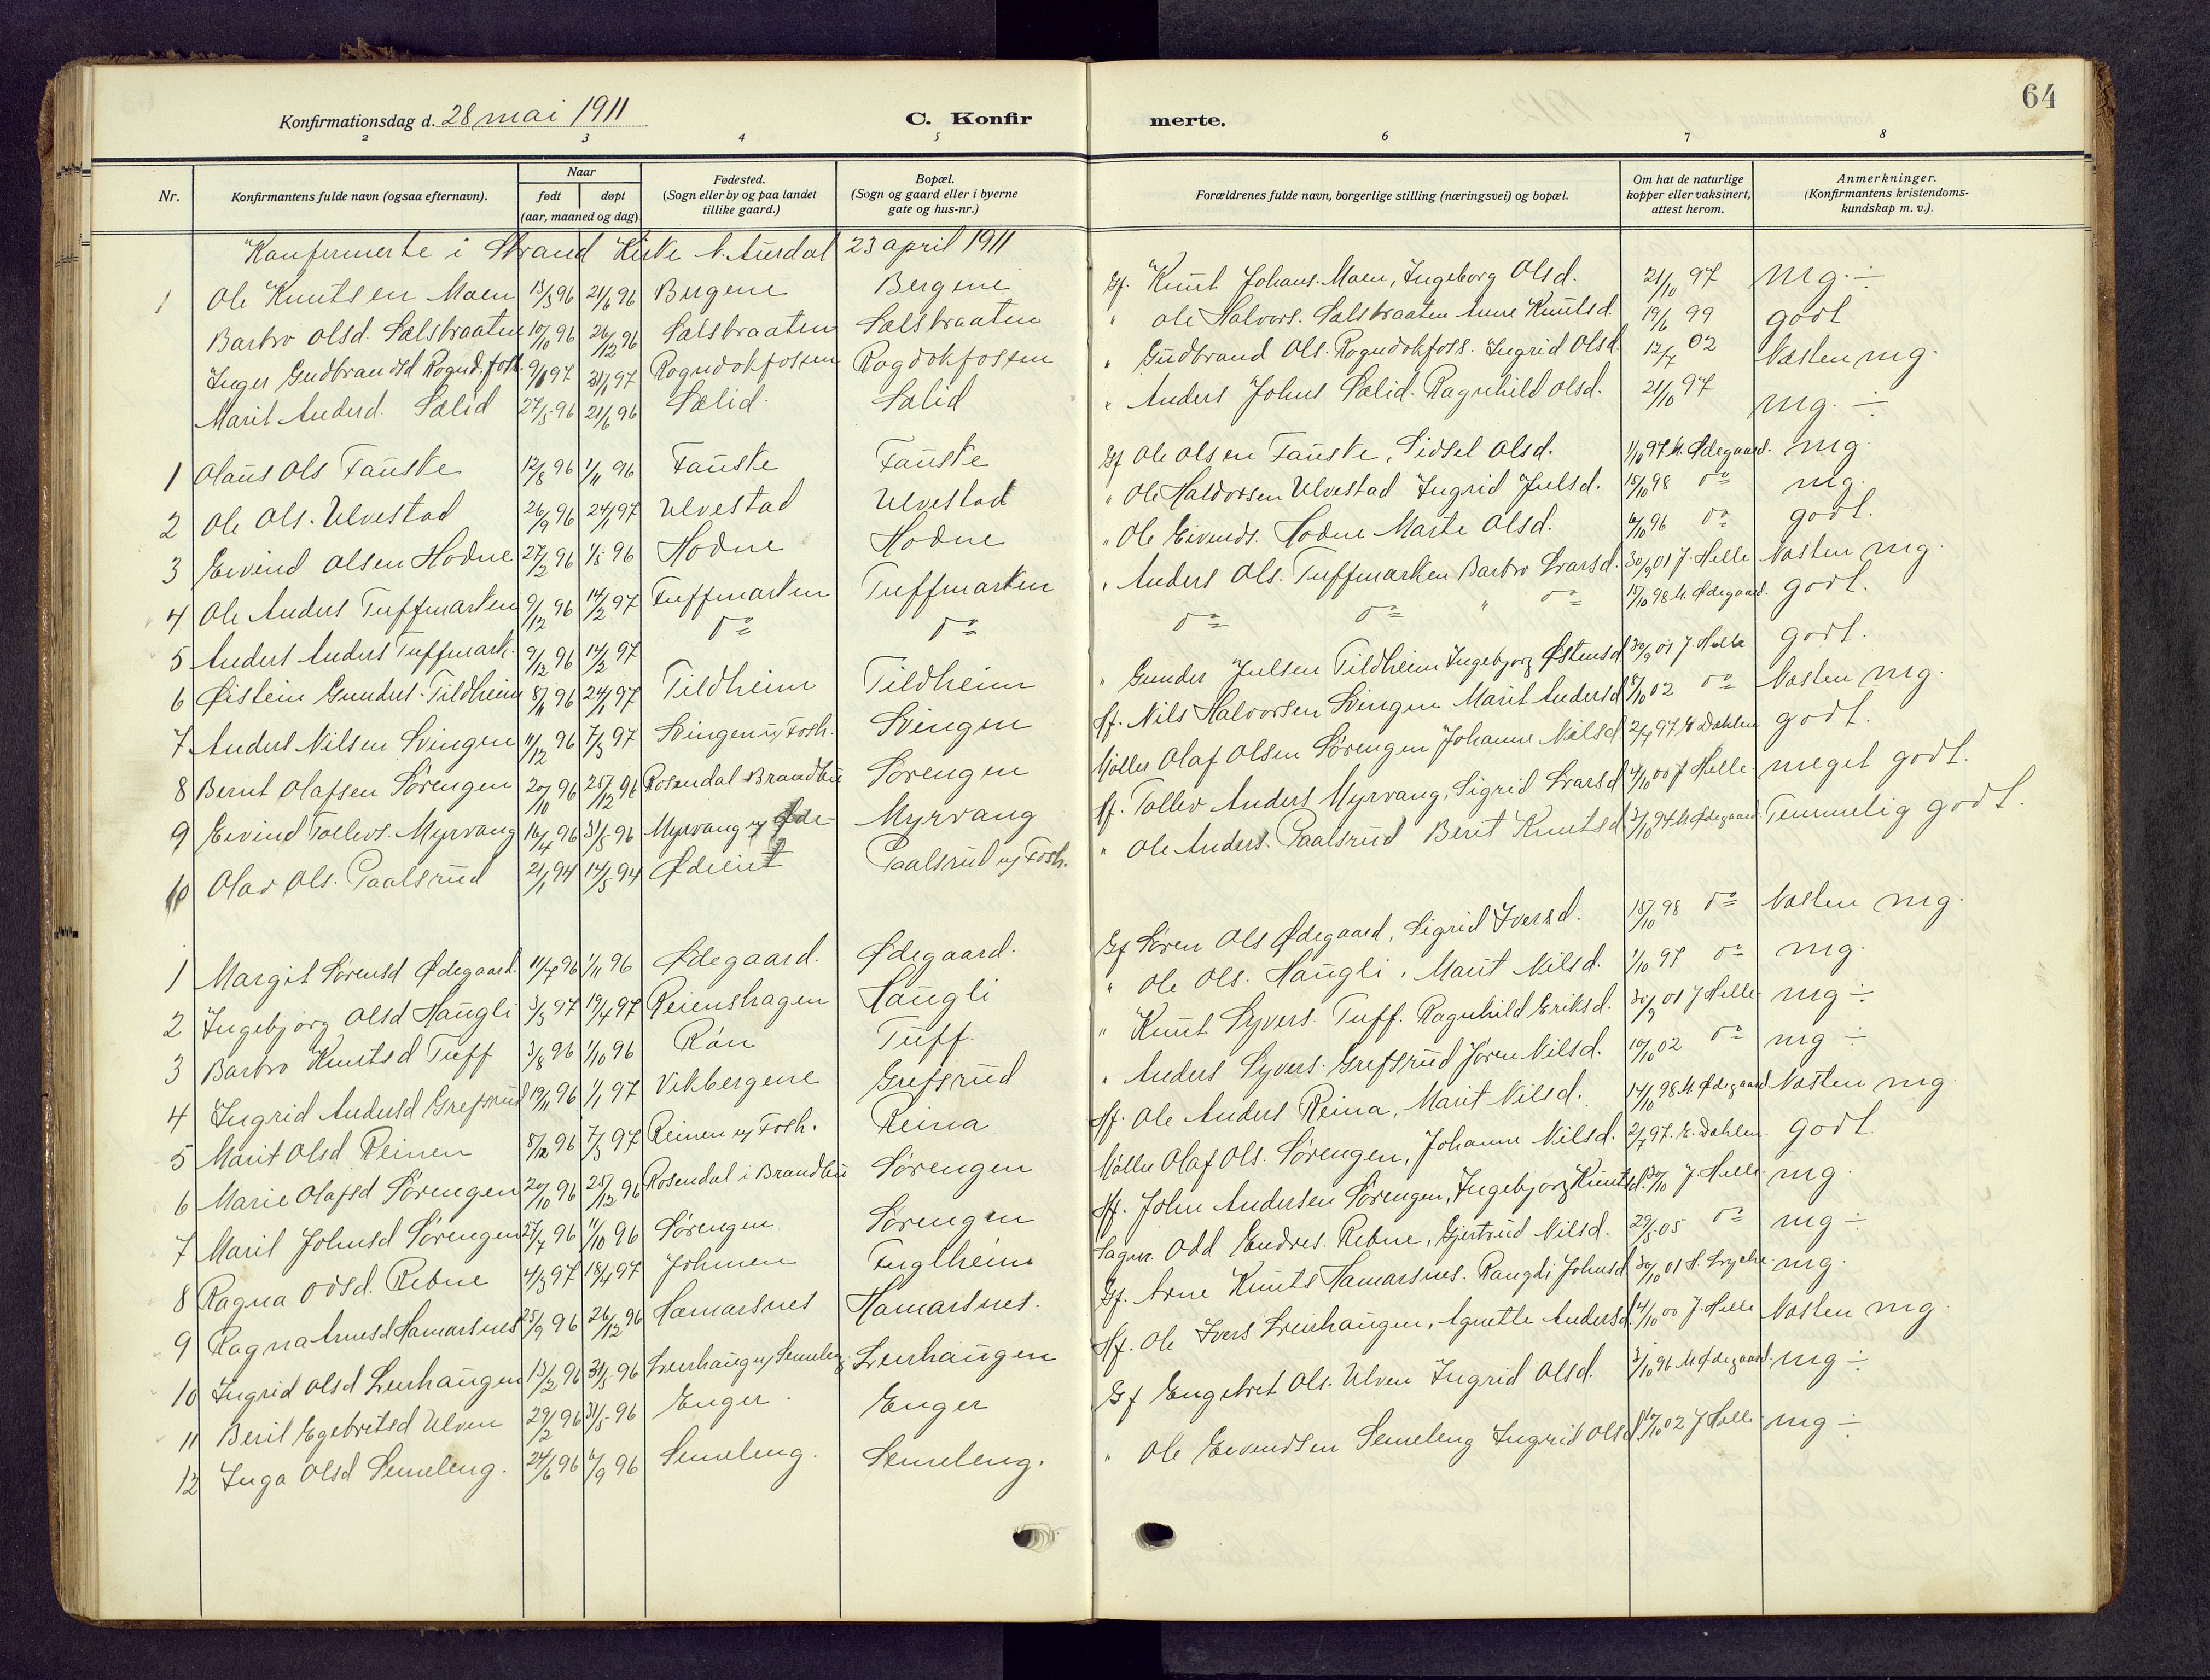 64
Konfirmationsdag d. 28 mai 1911 C. Konfirmerte.
2 3 4 5 6 7 8
Nr. Konfirmantens fulde navn (ogsaa efternavn). Naar født døpt (aar, maaned og dag) Fødested. (Sogn eller by og paa landet tillike gaard.) Bopæl. (Sogn og gaard eller i byerne gate og hus-nr.) Forældrenes fulde navn, borgerlige stilling (næringsvei) og bopæl. Om hat de naturlige kopper eller vaksinert, attest herom. Anmerkninger. (Konfirmantens kristendomskundskap m. v.).
Konfirmerte i Strand Kirke N. Aurdal 23 april 1911
1 Ole Knutsen Moen 13/5 96 21/6 96 Bergene Bergene Gf. Knut Johans. Moen, Ingeborg Olsd. 21/10 97 mg. ÷
Barbro Olsd. Sælsbraaten 10/10 96 26/12 96 Sælsbraaten Sælsbraaten " Ole Halvors. Sælsbraaten Anne Knutsd. 19/6 99 godt
Inger Gudbrandsd Rognd.foss. 9/1 97 31/1 97 Rogndokfossen Rogdokfossen " Gudbrand Ols. Rogndokfoss. Ingrid Olsd. 12/7 02 Næsten mg.
Marit Andersd. Sælid 27/5 96 21/6 96 Sælid. Sælid " Anders Johns Sælid. Ragnhild Olsd. 21/10 97 mg. ÷
1 Olaus Ols Fauske 12/8 96 1/11 96 Fauske Fauske Gf Ole Olsen Fauske, Sidsel Olsd. 1/10 97 M. Ødegaard. mg.
2 Ole Ols. Ulvestad 26/9 96 24/1 97 Ulvestad Ulvestad " Ole Haldorsen Ulvestad Ingrid Julsd. 15/10 98 do mg.
3 Eivind Olsen Hodne 27/2 96 1/5 96 Hodne Hodne " Ole Eivinds. Hodne Marte Olsd. 6/10 96 do godt.
4 Ole Anders Tuffmarken 9/12 96 14/2 97 Tuffmarken Tuffmarken " Anders Ols. Tuffmarken Barbro Larsd. 30/9 01 J. Helle Næsten mg.
5 Anders Anders Tuffmark. 9/12 96 14/2 97 do do do do " do 15/10 98 M. Ødegaard. godt.
6 Øistein Gunders. Tildheim 8/11 96 24/1 97 Tildheim Tildheim " Gunder Julsen Tildheim Ingebjorg Østensd 30/9 01 J. Helle godt.
7 Anders Nilsen Svingen 11/12 96 7/3 97 Svingen u/ Fosh. Svingen Hf. Nils Halvorsen Svingen Marit Andersd 8/10 02 do Næsten mg.
8 Bernt Olafsen Sørengen 20/10 96 25/12 96 Rosendal Brandbu Sørengen Møller Olaf Olsen Sørengen Johanne Nilsd 2/7 97 E. Dahlen godt.
9 Eivind Tollevs. Myrvang 16/4 96 31/5 96 Myrvang u/ Øde- Myrvang Hf. Tollev Anders Myrvang, Sigrid Larsd 4/10 00 J Helle. meget godt.
10 Olav Ols. Paalsrud 21/1 94 14/5 94 Paalsrud u/ Fosh. " Ole Anders. Paalsrud Berit Knutsd 3/10 94 M. Ødegaard. Temmelig godt.
1 Margit Sørensd Ødegaard. 11/7 96 1/11 96 Ødegaard. Ødegaard. Gf Søren Ols Ødegaard, Sigrid Iversd. 15/10 98 do Næsten mg.
2 Ingebjørg Olsd Haugli 3/3 97 19/4 97 Reienshagen Haugli " Ole Ols. Haugli, Marit Nilsd. 1/10 97 do mg.
3 Barbro Knutsd Tuff 3/8 96 1/10 96 Røn Tuff. " Knut Syvers. Tuff. Ragnhild Eriksd. 30/9 01 J Helle mg ÷
4 Ingrid Andersd Grefsrud 19/11 96 1/1 97 Vikbergene Grefsrud " Anders Syvers. Grefsrud Jøren Nilsd. 10/10 02 do mg ÷
5 Marit Olsd Reinen 8/12 96 7/3 97 Reinen u/ Fosh. Reina Hf. Ole Anders Reina, Marit Nilsd. 14/10 98 M. Ødegaard Næsten mg
6 Marie Olafsd Sørengen 20/10 96 25/12 96 Rosendal i Brandbu Sørengen Møller Olaf Ols. Sørengen, Johanne Nilsd. 2/7 97. E. Dahlen. godt.
7 Marit Johnsd Sørengen 27/7 96 11/10 96 Sørengen Sørengen Hf. John Andersen Sørengen, Ingebjorg Knutsd. J Helle. mg.
8 Ragna Odsd. Rebne 4/3 97 18/4 97 Johmen Fuglheim Sagm. Odd Endres. Rebne, Gjertrud Nilsd. 29/5 05 do mg ÷
9 Ragna Arnesd Hamarsnes 25/9 96 26/12 96 Hamarsnes Hamarsnes. Gf. Arne Knuts Hamarsnes. Rangdi Johnsd 30/10 01 mg.
10 Ingrid Olsd Leirhaugen 13/2 96 31/5 96 Leirhaug u/ Semeleng. Leirhaugen Hf. Ole Ivers Leirhaugen, Agnethe Andersd. 4/10 00 J. Helle Næsten mg.
11 Beril Egebretsd Ulven 29/2 96 31/5 96 Enger. Enger Gf Engebret Ols. Ulven Ingrid Olsd. 3/10 96 M. Ødegaard. mg ÷
12 Inga Olsd Semeleng. 24/6 96 6/9 96 Semeleng. Semeleng. " Ole Eivendsen Semeleng Ingrid Olsd 10/10 02 J Helle mg ÷